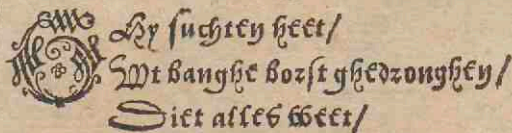 GHy ſuchten heet/
Wt banghe borſt ghedronghen/
Diet alles weet/